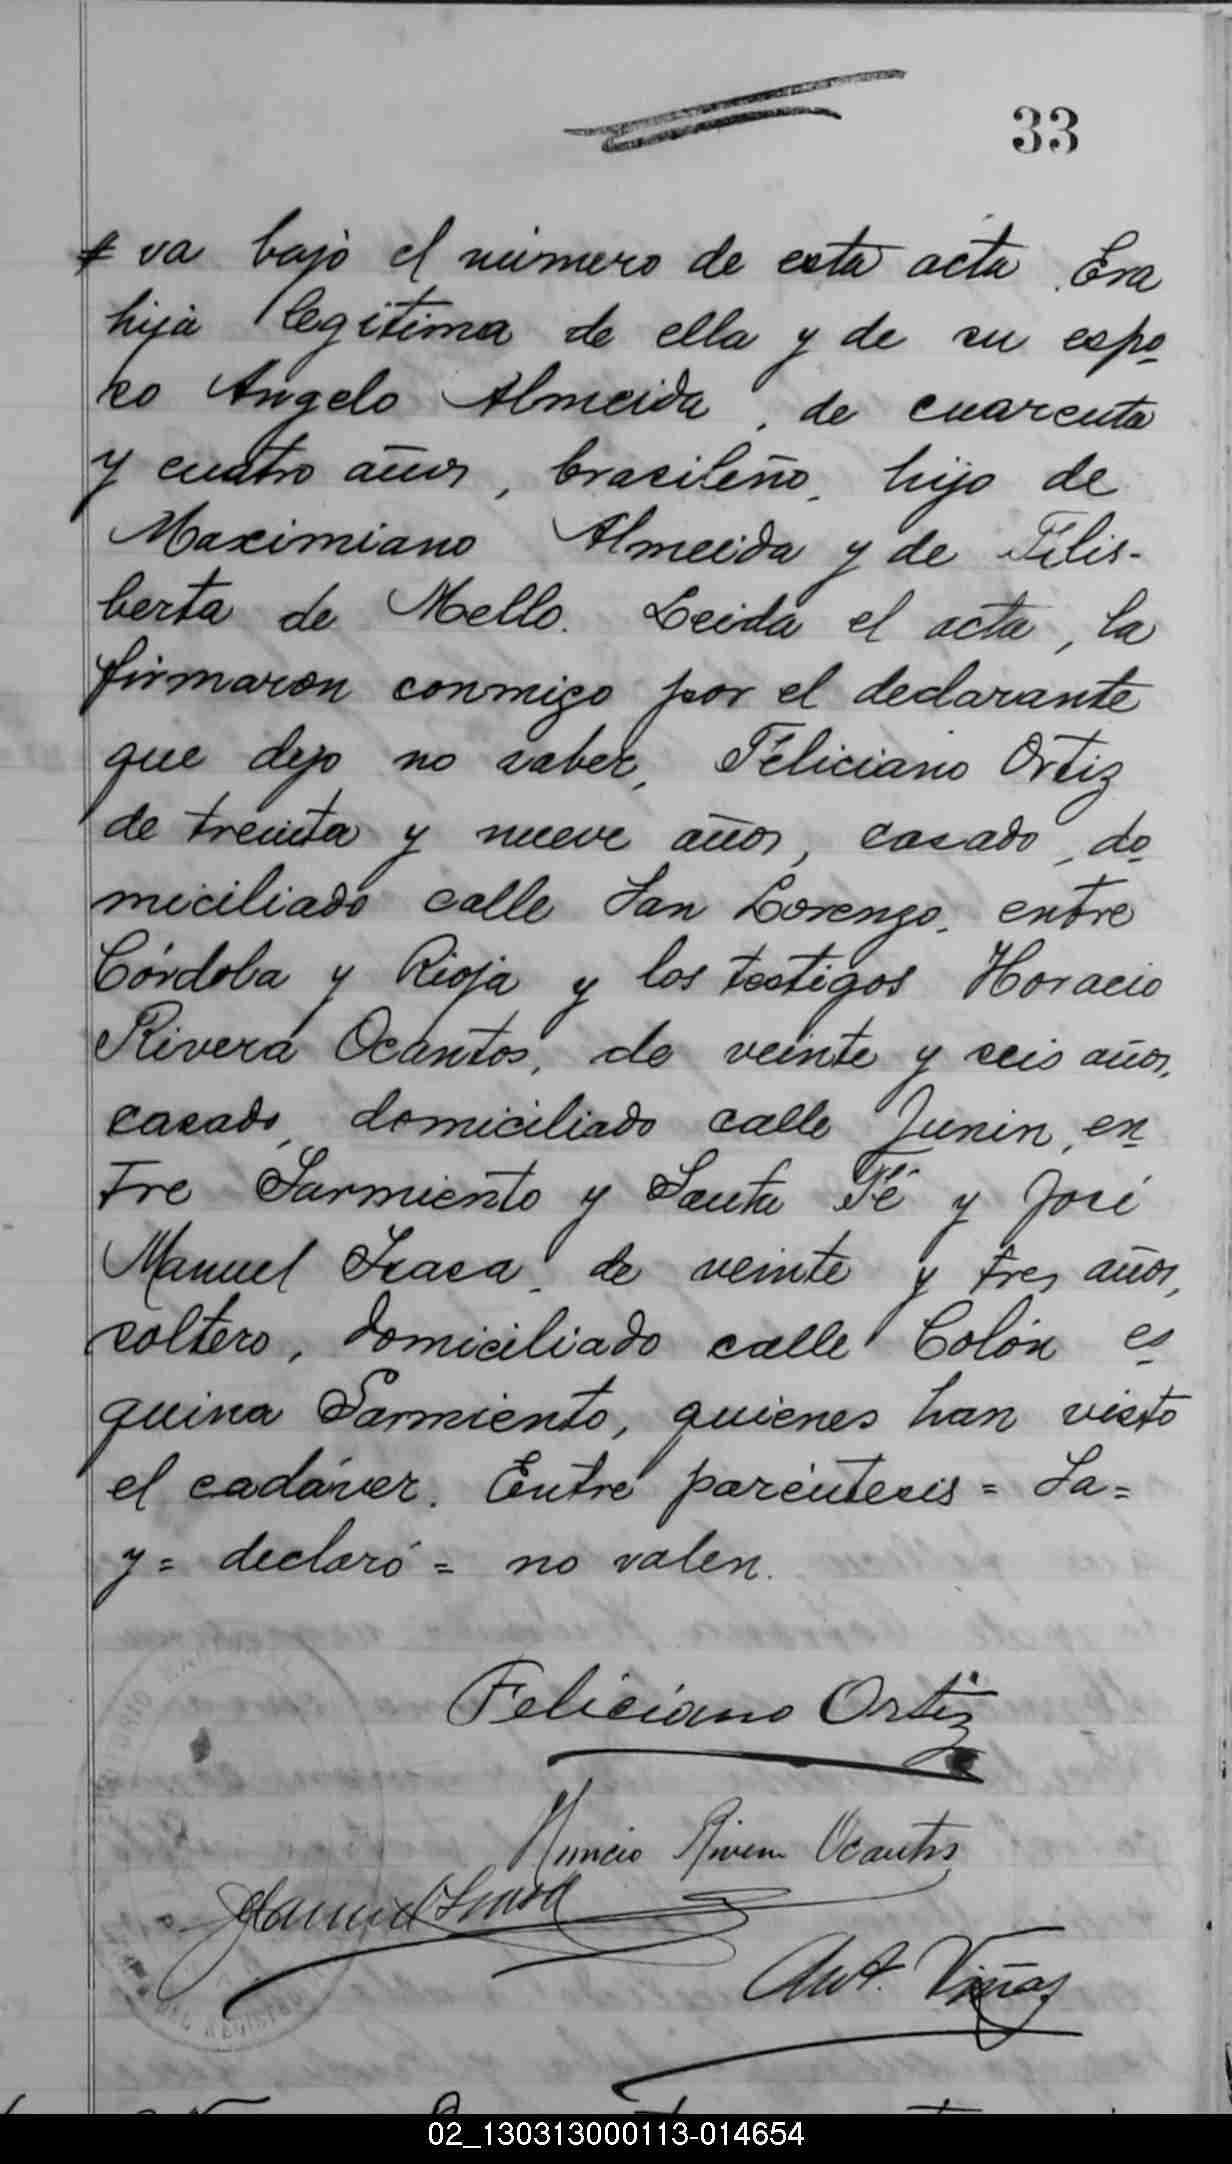 33
# va bajo el número de esta acta. Era
hija legítima de ella y de su espo-
so Angelo Almeida, de cuarenta
y cuatro años, brasileño, hijo de
Maximiano Almeida y de Filis-
berta de Mello. Leida el acta, la
firmaron conmigo por el declarante
que dijo no saber, Feliciano Ortiz
de treinta y nueve años, casado, do-
miciliado calle San Lorenzo, entre
Córdoba y Rioja y los testigos Horacio
Rivera Ocantos, de veinte y seis años,
casado, domiciliado calle Junin, en-
tre Sarmiento y Santa Fé y José
Manuel Isasa, de veinte y tres años,
soltero, domiciliado calle Colón es-
quina Sarmiento, quienes han visto
el cadáver. Entre paréntesis = La =
y = declaró = no valen.
Feliciano Ortiz
Horacio Rivera Ocantos
JManuel Isasa
Ant. Viñas
02_130313000113-014654